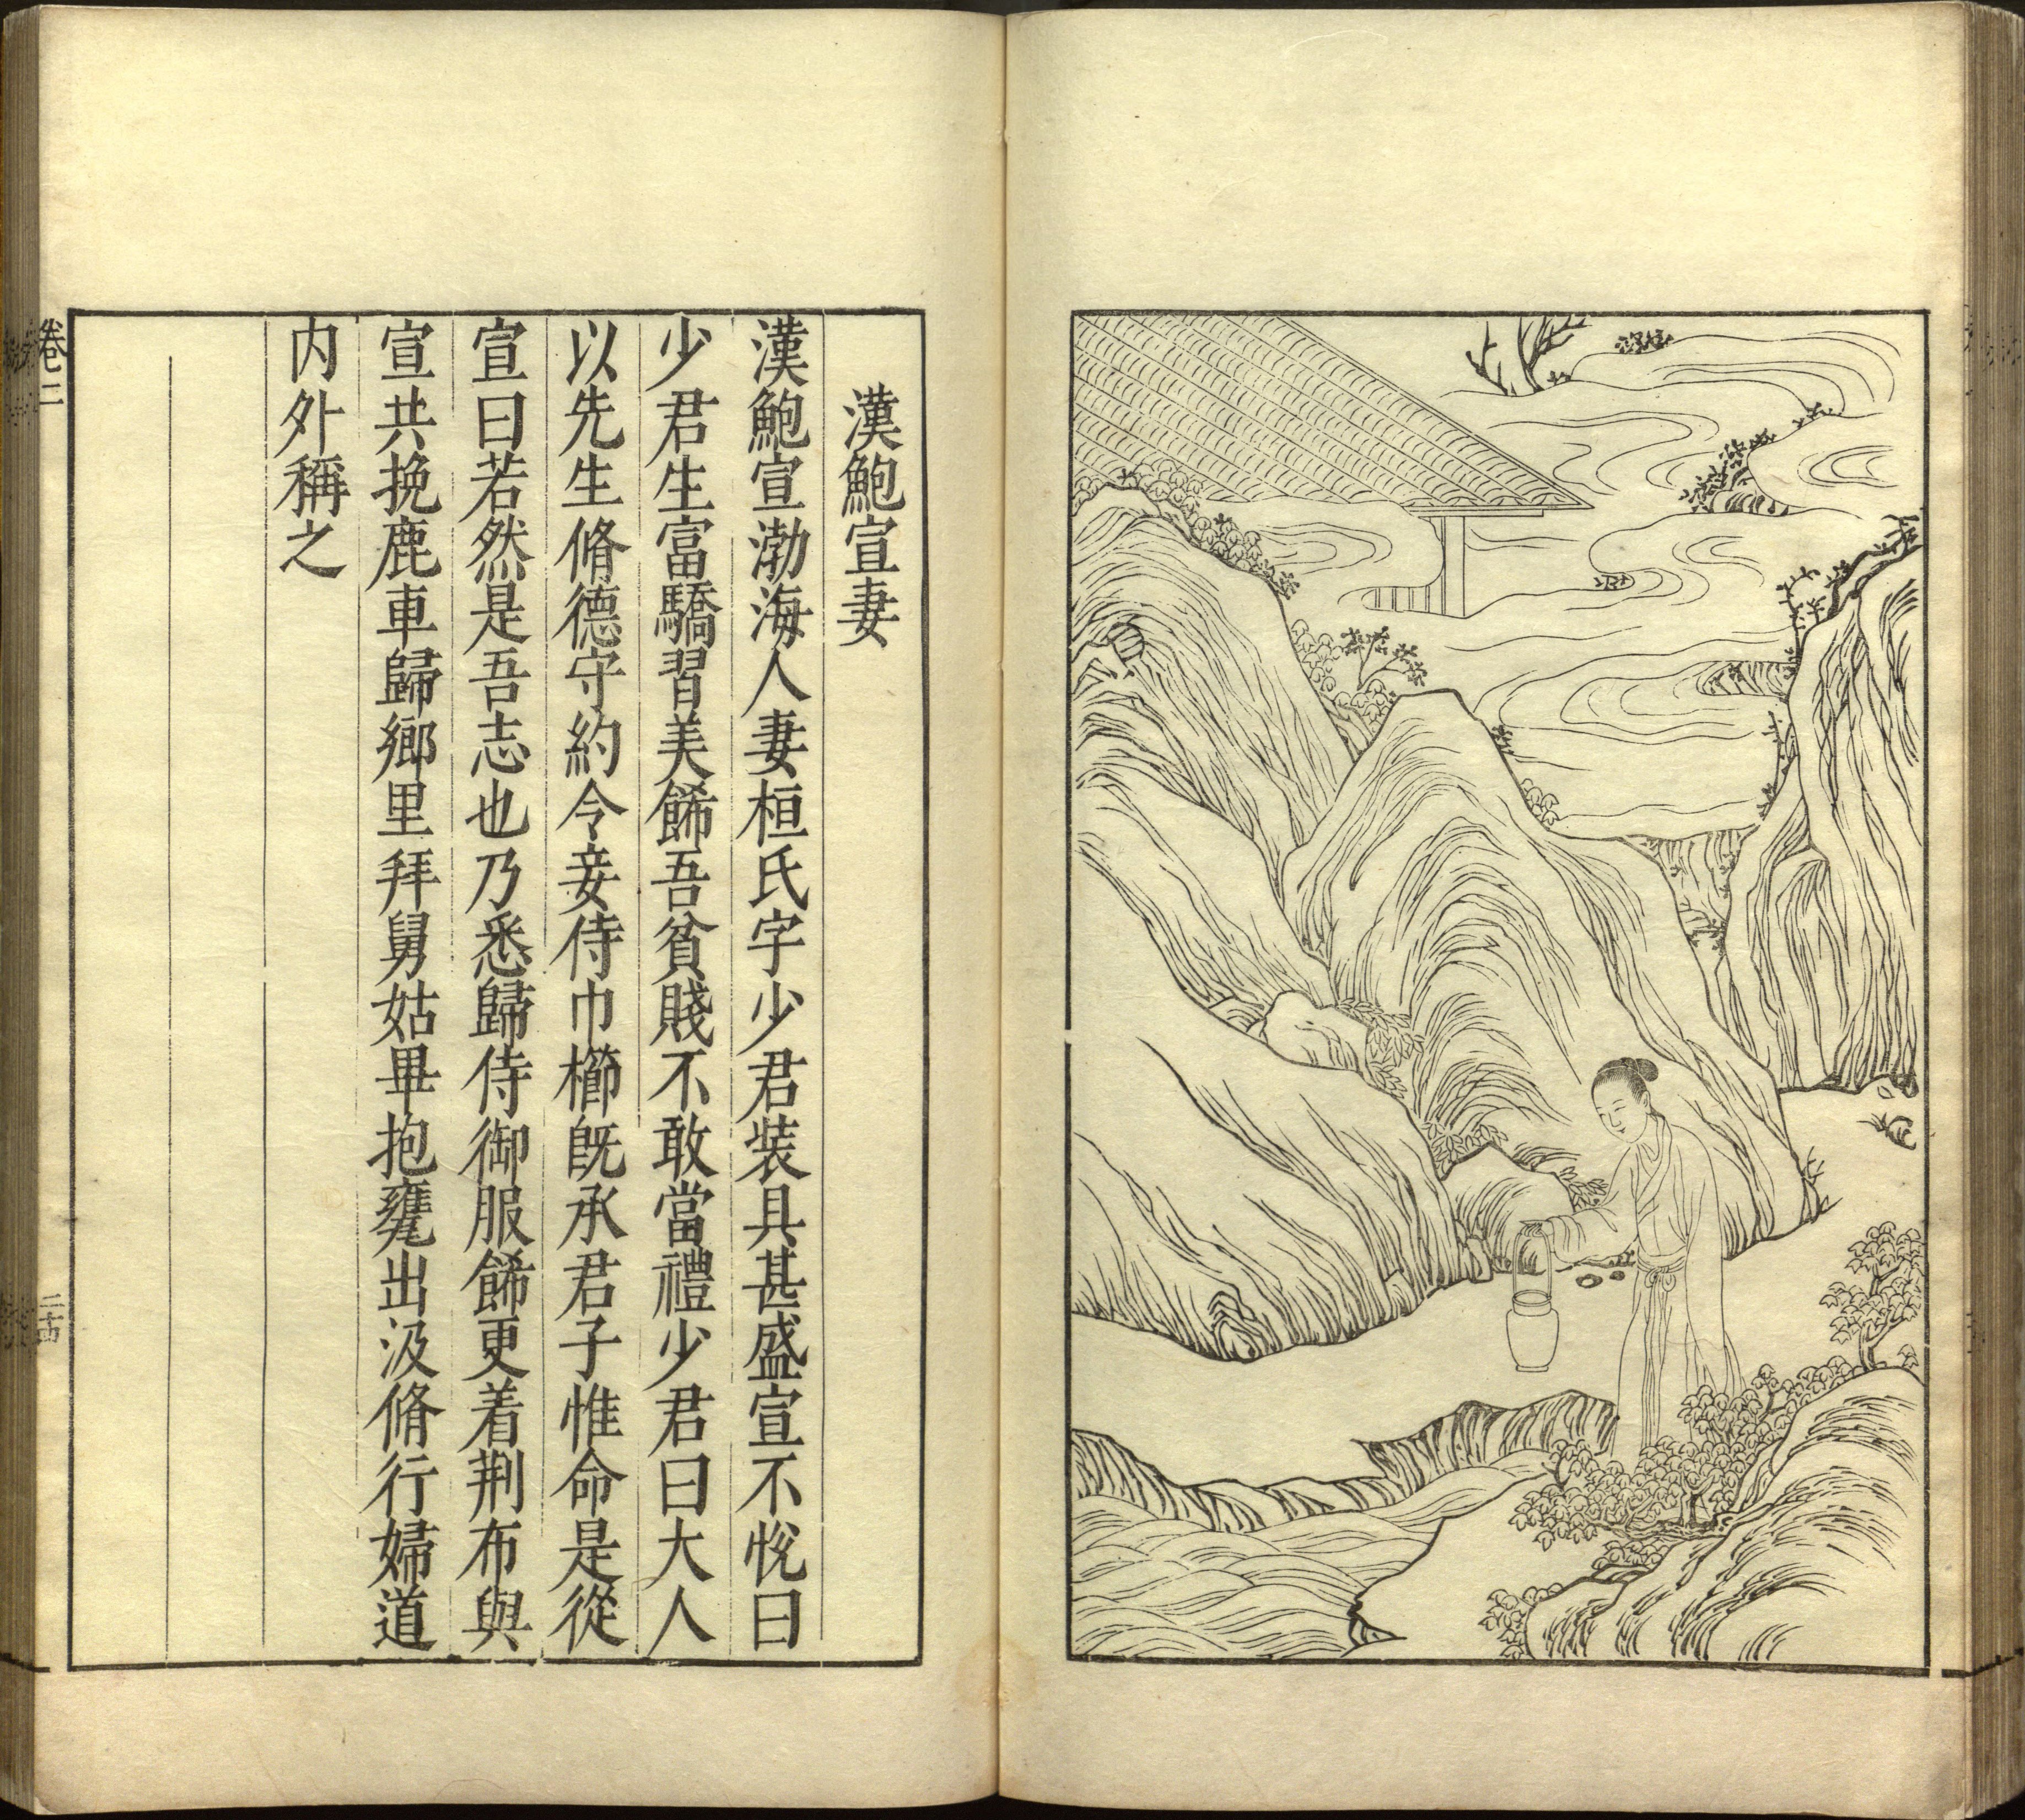 漢鮑宣妻
漢鮑宣渤海人妻桓氏字少君装具甚盛宣不恱曰
少君生富驕習美餙吾貧賤不敢當禮少君曰大人
以先生脩德守約令妾侍巾櫛旣承君子惟命是從
宣曰若然是吾志也乃悉歸侍御服餙更着荆布與
宣共挽鹿車歸鄉里拜舅姑畢抱甕出汲脩行婦道
内外稱之
卷三
二十四